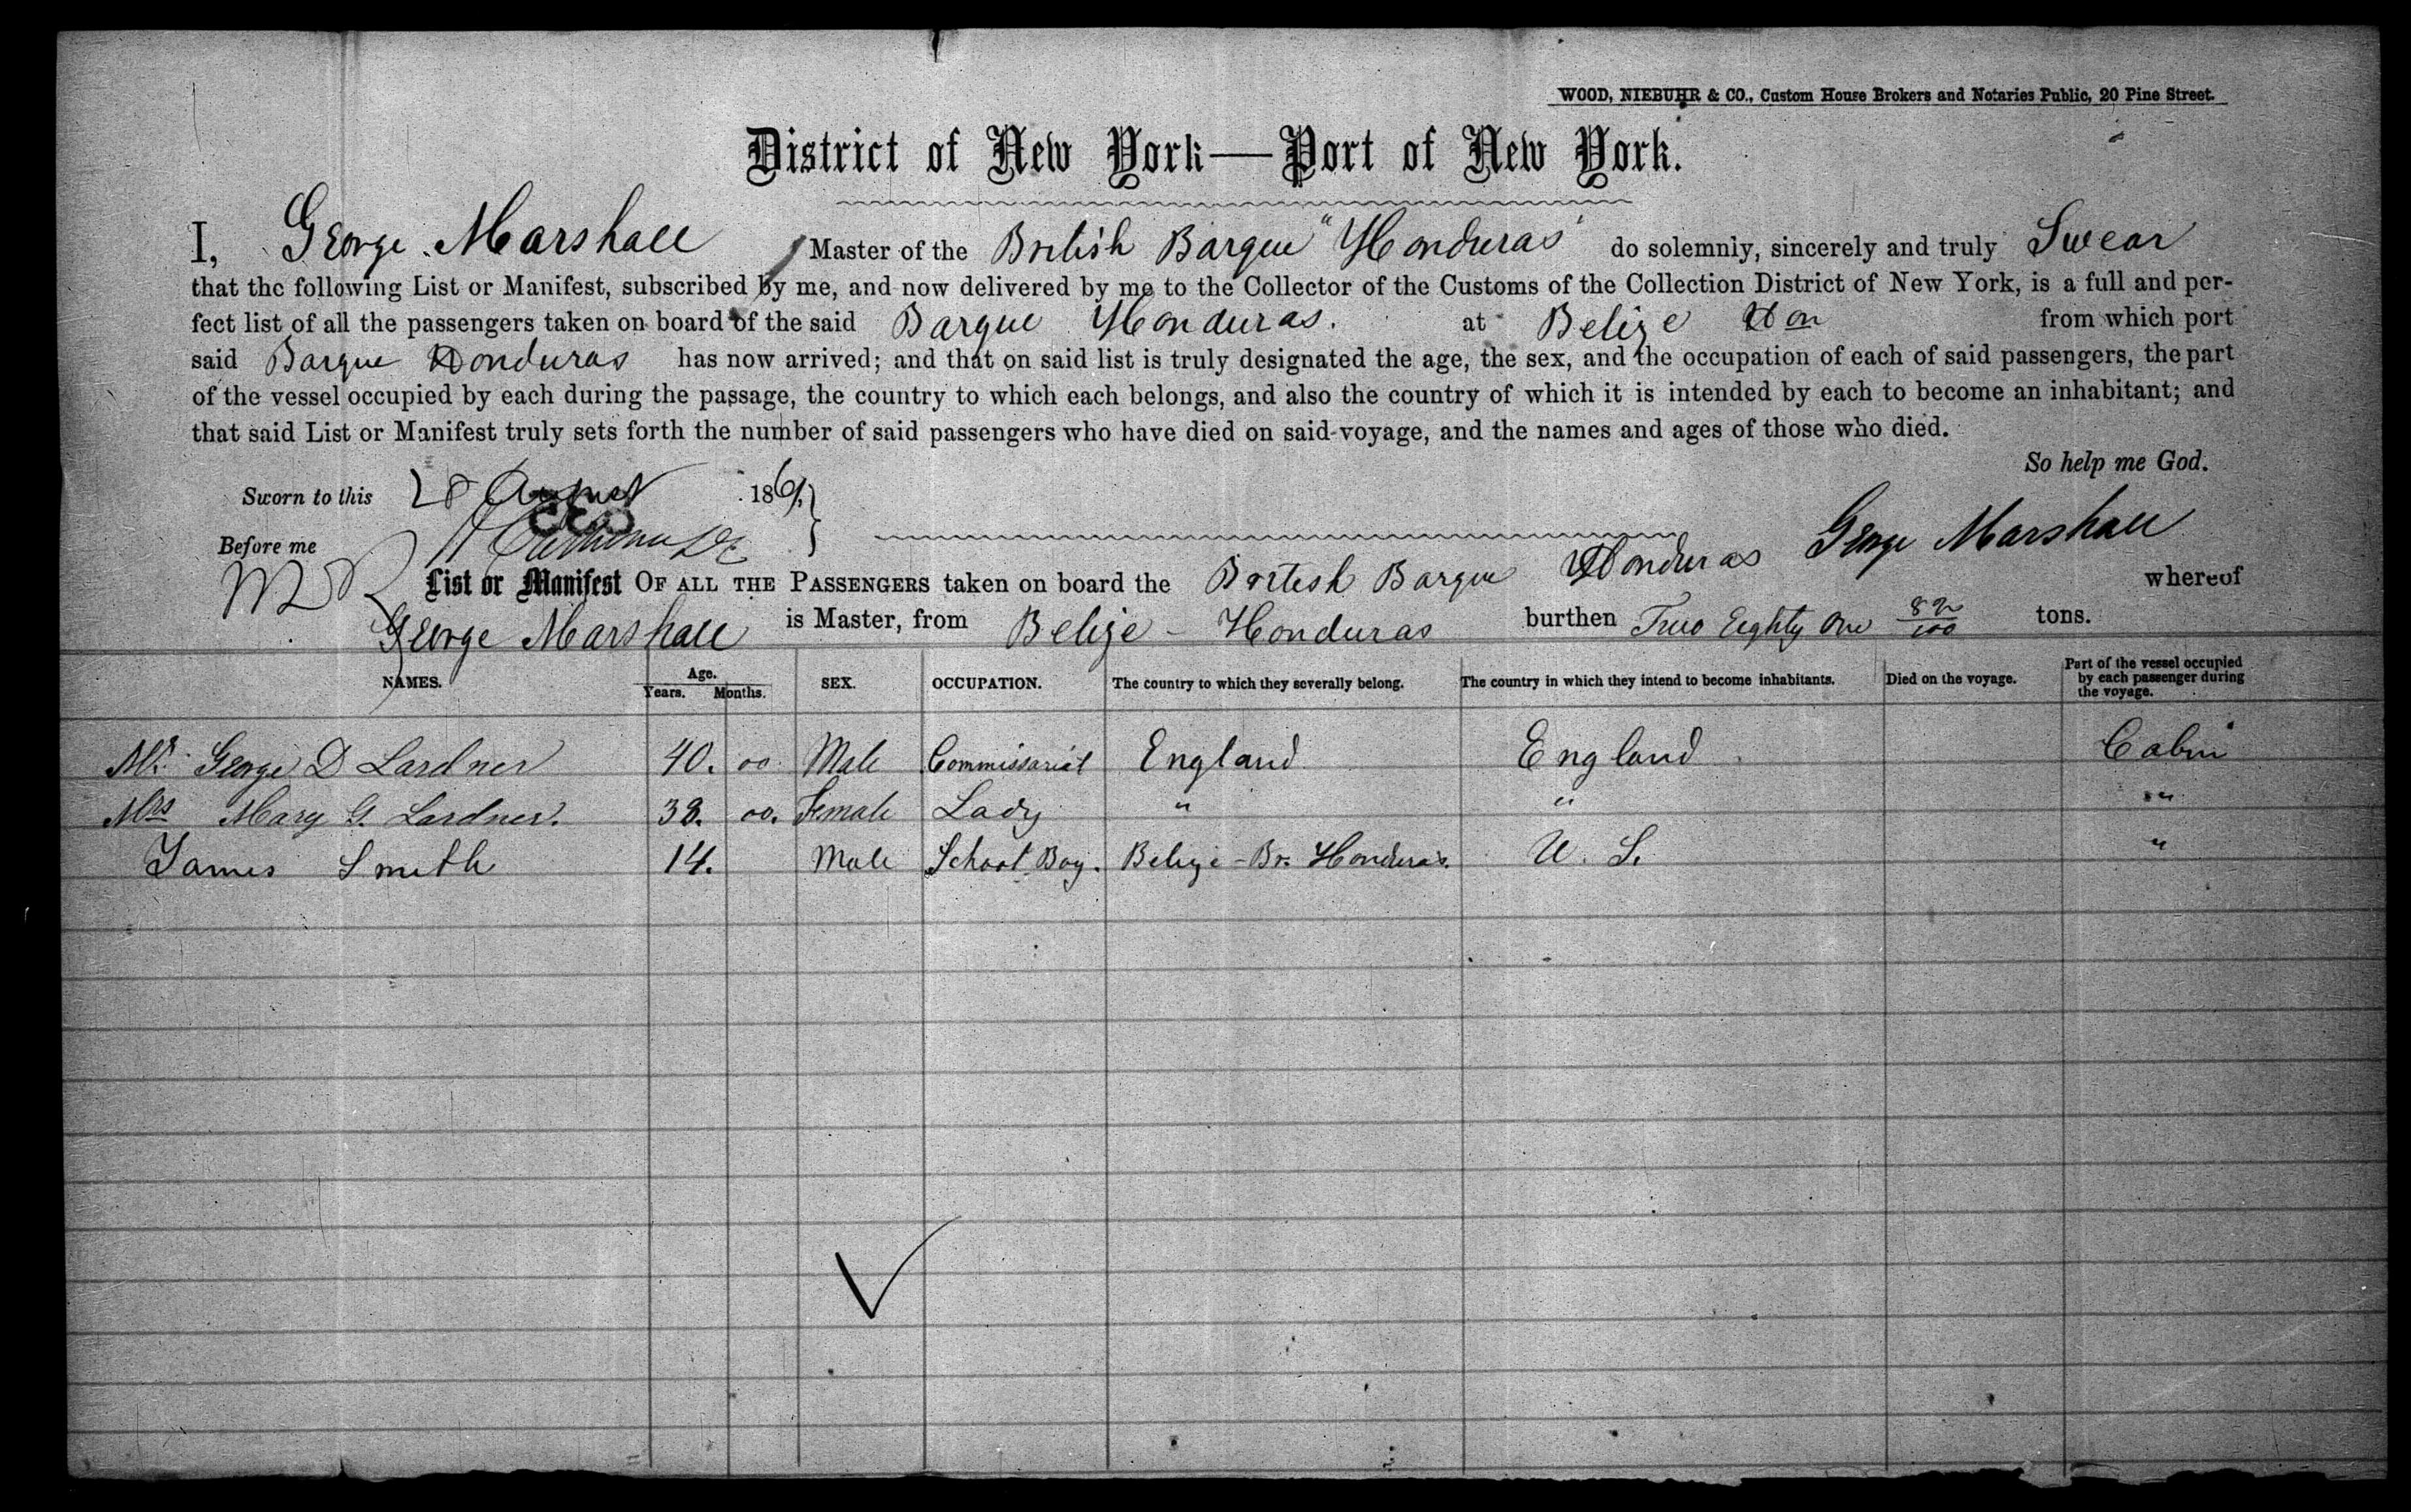 WOOD, NIEBUHR & CO., Custom House Brokers and Notaries Public, 20 Pine Street.
District of New York—Port of New York.
I, George Marshall Master of the British Barque "Honduras" do solemnly, sincerely and truly Swear
that the following List or Manifest, subscribed by me, and now delivered by me to the Collector of the Customs of the Collection District of New York, is a full and per-
fect list of all the passengers taken on board of the said Barque Honduras. at Belize Hon from which port
said Barque Honduras has now arrived; and that on said list is truly designated the age, the sex, and the occupation of each of said passengers, the part
of the vessel occupied by each during the passage, the country to which each belongs, and also the country of which it is intended by each to become an inhabitant; and
that said List or Manifest truly sets forth the number of said passengers who have died on said voyage, and the names and ages of those who died.
So help me God.
Sworn to this 28 August 1861.
Before me
George Marshall
List or Manifest OF ALL THE PASSENGERS taken on board the British Barque Honduras whereof
George Marshall is Master, from Belize - Honduras burthen Two Eighty One tons.
NAMES. Age. Years. Months. SEX. OCCUPATION. The country to which they severally belong. The country in which they intend to become inhabitants. Died on the voyage. Part of the vessel occupied by each passenger during the voyage.
Mr. George D Lardner 40. 00 Male Commissariat England England Cabin
Mrs Mary G. Lardner. 38. 00. Female Lady " " "
James Smith 14. Male School Boy. Belize - Br. Honduras. U. S. "